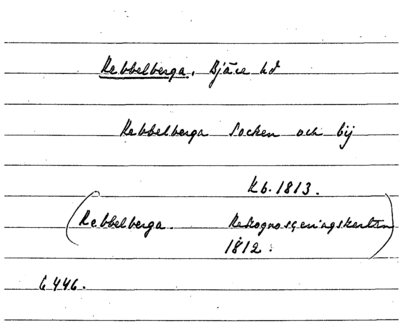 Rebbelberga. Bjäre hd
Rebbelberga Socken och by
Kb. 1813.
(Rebbelberga. Rekognosceringskartan)
1812.
6446.